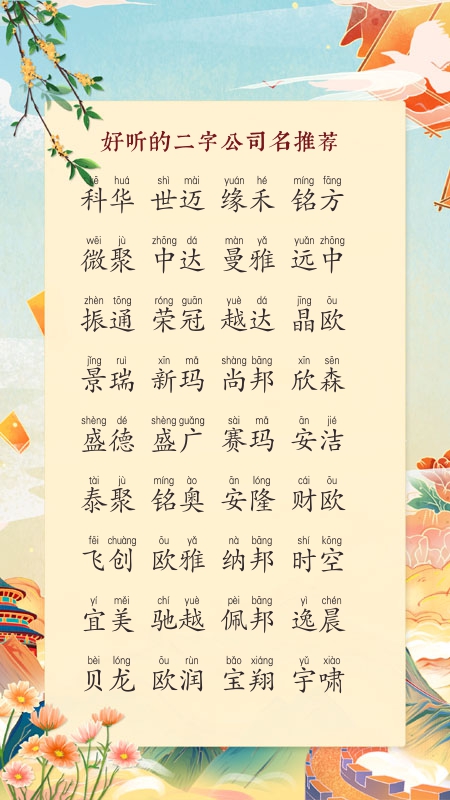 好听的二字公司名推荐
kē huá shì mài yuán hé míng fāng
科华 世迈 缘禾 铭方
wēi jù zhōng dá màn yǎ yuǎn zhōng
微聚 中达 曼雅 远中
zhèn tōng róng guān yuè dá jīng ōu
振通 荣冠 越达 晶欧
jǐng ruì xīn mǎ shàng bāng xīn sēn
景瑞 新玛 尚邦 欣森
shèng dé shèng guǎng sài mǎ ān jié
盛德 盛广 赛玛 安洁
tài jù míng ào ān lóng cái ōu
泰聚 铭奥 安隆 财欧
fēi chuàng ōu yǎ nà bāng shí kōng
飞创 欧雅 纳邦 时空
yí měi chí yuè pèi bāng yì chén
宜美 驰越 佩邦 逸晨
bèi lóng ōu rùn bǎo xiáng yǔ xiào
贝龙 欧润 宝翔 宇啸